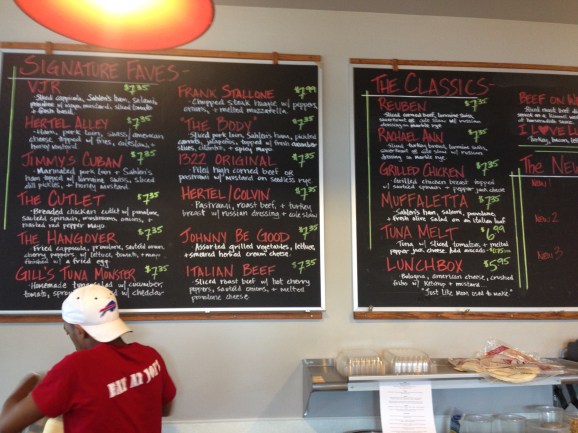 SIGNATURE FAVES-
VJR $7.35
- Sliced cappicola, Sahlen's ham, salami,
provolone w/ mayo, mustard, sliced tomato
+ fresh basil
HERTEL ALLEY $7.35
- Ham, pork loin, swiss, american
cheese, topped w/ fries, coleslaw +
honey mustard
JIMMY'S CUBAN $7.35
- Marinated pork loin + Sahlen's
ham topped w/ lorraine swiss, sliced
dill pickles, + honey mustard
THE CUTLET $7.35
- Breaded chicken cutlet w/ provolone,
sautéed spinach, mushrooms, onions, +
roasted red pepper mayo
THE HANGOVER $7.35
- Fried cappicola, provolone, sautéed onion,
cherry peppers w/ lettuce, tomato, + mayo
w/ a fried egg
GILL'S TUNA MONSTER $7.35
- Homemade tuna salad w/ cucumber,
tomato, w/ cheddar
FRANK STALLONE $7.99
- Chopped steak hoagie w/ peppers,
onions, + melted mozzarella
"THE BODY" $7.35
- Sliced pork loin, Sahlen's ham, pickled
carrots, jalapeños, topped w/ fresh cucumber
slices, cilantro, + spicy mayo
1322 ORIGINAL $7.35
- Piled high corned beef or
pastrami w/ mustard on seedless rye
HERTEL/COLVIN $7.35
- Pastrami, roast beef, + turkey
breast w/ russian dressing + cole slaw
JOHNNY BE GOOD $7.35
- Assorted grilled vegetables, lettuce,
+ smeared herbed cream cheese
ITALIAN BEEF $7.35
- Sliced roast beef w/ hot cherry
peppers, sautéed onions, + melted
provolone cheese
THE CLASSICS-
REUBEN $7.35
- Sliced corned beef, lorraine swiss,
sauerkraut or cole slaw w/ russian
dressing on marble rye
RACHAEL ANN $7.35
- Sliced turkey breast, lorraine swiss,
sauerkraut or cole slaw w/ russian
dressing on marble rye
GRILLED CHICKEN $7.35
- Grilled chicken breast topped
w/ sautéed spinach + pepper jack cheese
MUFFALETTA $7.35
- Sahlen's ham, salami, provolone,
+ fresh olive salad on an italian roll
TUNA MELT $6.99
- Tuna w/ sliced tomatoe, + melted
pepper jack cheese. Add avocado
LUNCHBOX $5.95
- Bologna, american cheese, crushed
fritos w/ ketchup + mustard...
"Just like mom used to make"
BEEF ON W
Sliced roast beef
I L♥VE
Turkey, bacon,
THE NE
New 1
New 2
New 3
EAT AT JOE'S